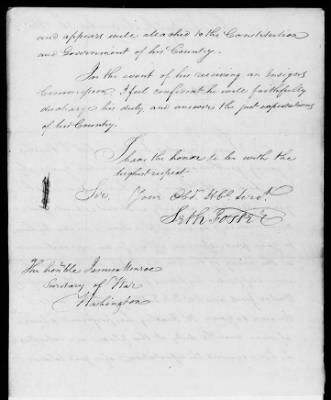 and appears well attached to the Constitution
and Government of his Country.
In the event of his receiving an Ensigns
Commission I feel confident he will faithfully
discharge his duty, and answer the just expectations
of his Country.
I have the honor to be with the
highest respect.
Sir, Your Obd. Hbl. Servt.
Seth Foster
The honble. James Monroe
Secretary of War
Washington